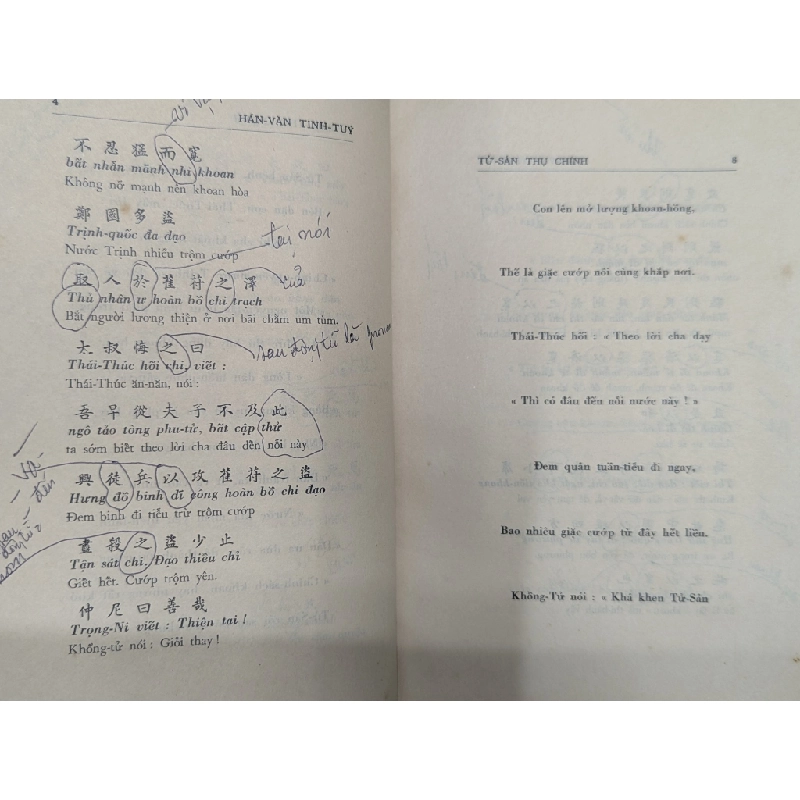 HÁN-VĂN TINH-TUÝ
不忍猛而寬
bất nhẫn mãnh nhi khoan
Không nỡ mạnh nên khoan hòa
鄭國多盜
Trịnh-quốc đa đạo
Nước Trịnh nhiều trộm cướp
tại, nơi
取人於萑苻之澤
của
Thủ nhân ư hoàn bồ chi trạch
Bắt người lương thiện ở nơi bãi chằm um tùm.
大叔悔之曰
Thái-Thúc hối chi, viết :
Thái-Thúc ăn-năn, nói :
吾早從夫子不及此
ngô tảo tòng phu-tử, bất cập thử
ta sớm biết theo lời cha đâu đến nỗi này
興徒兵以攻萑苻之盜
Hưng đồ binh dĩ công hoàn bồ chi đạo
Đem binh đi tiễu trừ trộm cướp
盡殺之盜少止
Tận sát chi. Đạo thiểu chỉ
Giết hết. Cướp trộm yên.
仲尼曰善哉
Trọng-Ni viết : Thiện tai !
Khổng-tử nói : Giỏi thay !
TỬ-SẢN THỤ CHÍNH
Con lên mở lượng khoan-hồng.
Thế là giặc cướp nổi cùng khắp nơi.
Thái-Thúc hối : « Theo lời cha dạy
« Thì có đâu đến nỗi nước này ! »
Đem quân tuần-tiễu đi ngay.
Bao nhiêu giặc cướp từ đây hết liền.
Khổng-Tử nói : « Khá khen Tử-Sản